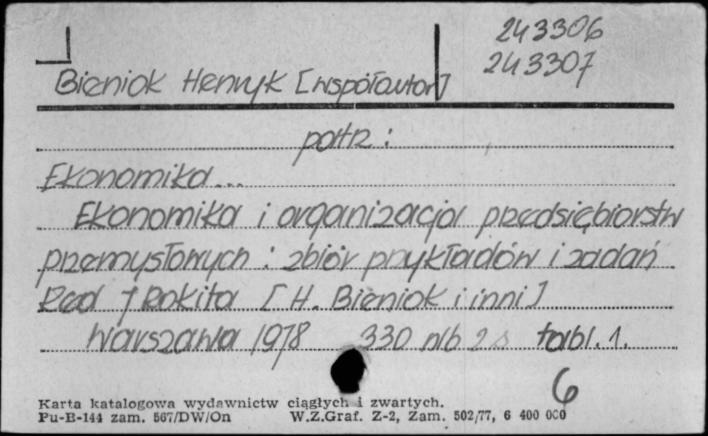 243306
243307
Bieniok Henryk [współautor]
patrz:
Ekonomika...
Ekonomika i organizacja przedsiębiorstw
przemysłowych : zbiór przykładów i zadań
Red J Rokita [H. Bieniok i inni]
Warszawa 1978 330 nlb 2 s tabl. 1.
6
Karta katalogowa wydawnictw ciągłych i zwartych.
Pu-B-144 zam. 567/DW/On W.Z.Graf. Z-2, Zam. 502/77, 6 400 000